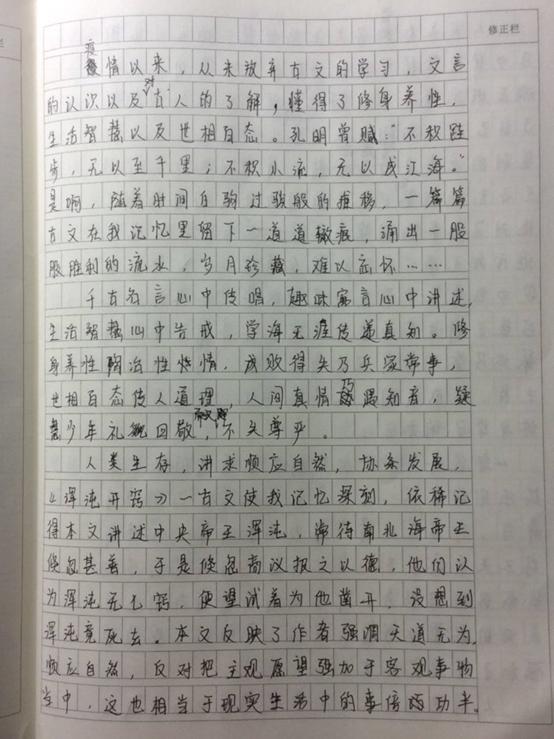 修正栏
疫情以来，从未放弃古文的学习，文言
的认次以及对古人的了解，懂得了修身养性，
生活智慧以及世相百态。孔明曾赋："不积跬
步，无以至千里；不积小流，无以成江海。"
是啊，随着时间白驹过骏般的推移，一篇篇
古文在我记忆里留下一道道辙痕，涌出一股
股胜利的流水，岁月珍藏，难以忘怀……
千古名言心中传唱，趣味寓言心中讲述，
生活智慧心中告戒，学海无涯传递真知。修
身养性陶冶性情，成败得失乃兵家常事，
世相百态传人道理，人间真情乃遇知音，疑
少年礼貌回敬，不失尊严。
人类生存，讲求顺应自然，协条发展，
《浑沌开窍》一古文使我记忆深刻，依稀记
得本文讲述中央帝王浑沌，常待南北海帝王
倏忽甚善，于是倏忽商议报之以德，他们认
为浑沌无七窍，便望试着为他凿开，没想到
浑沌竟死去。本文反映了作者强调天道无为，
顺应自然，反对把主观愿望强加于客观事物
当中，这也相当于现实生活中的事倍功半。